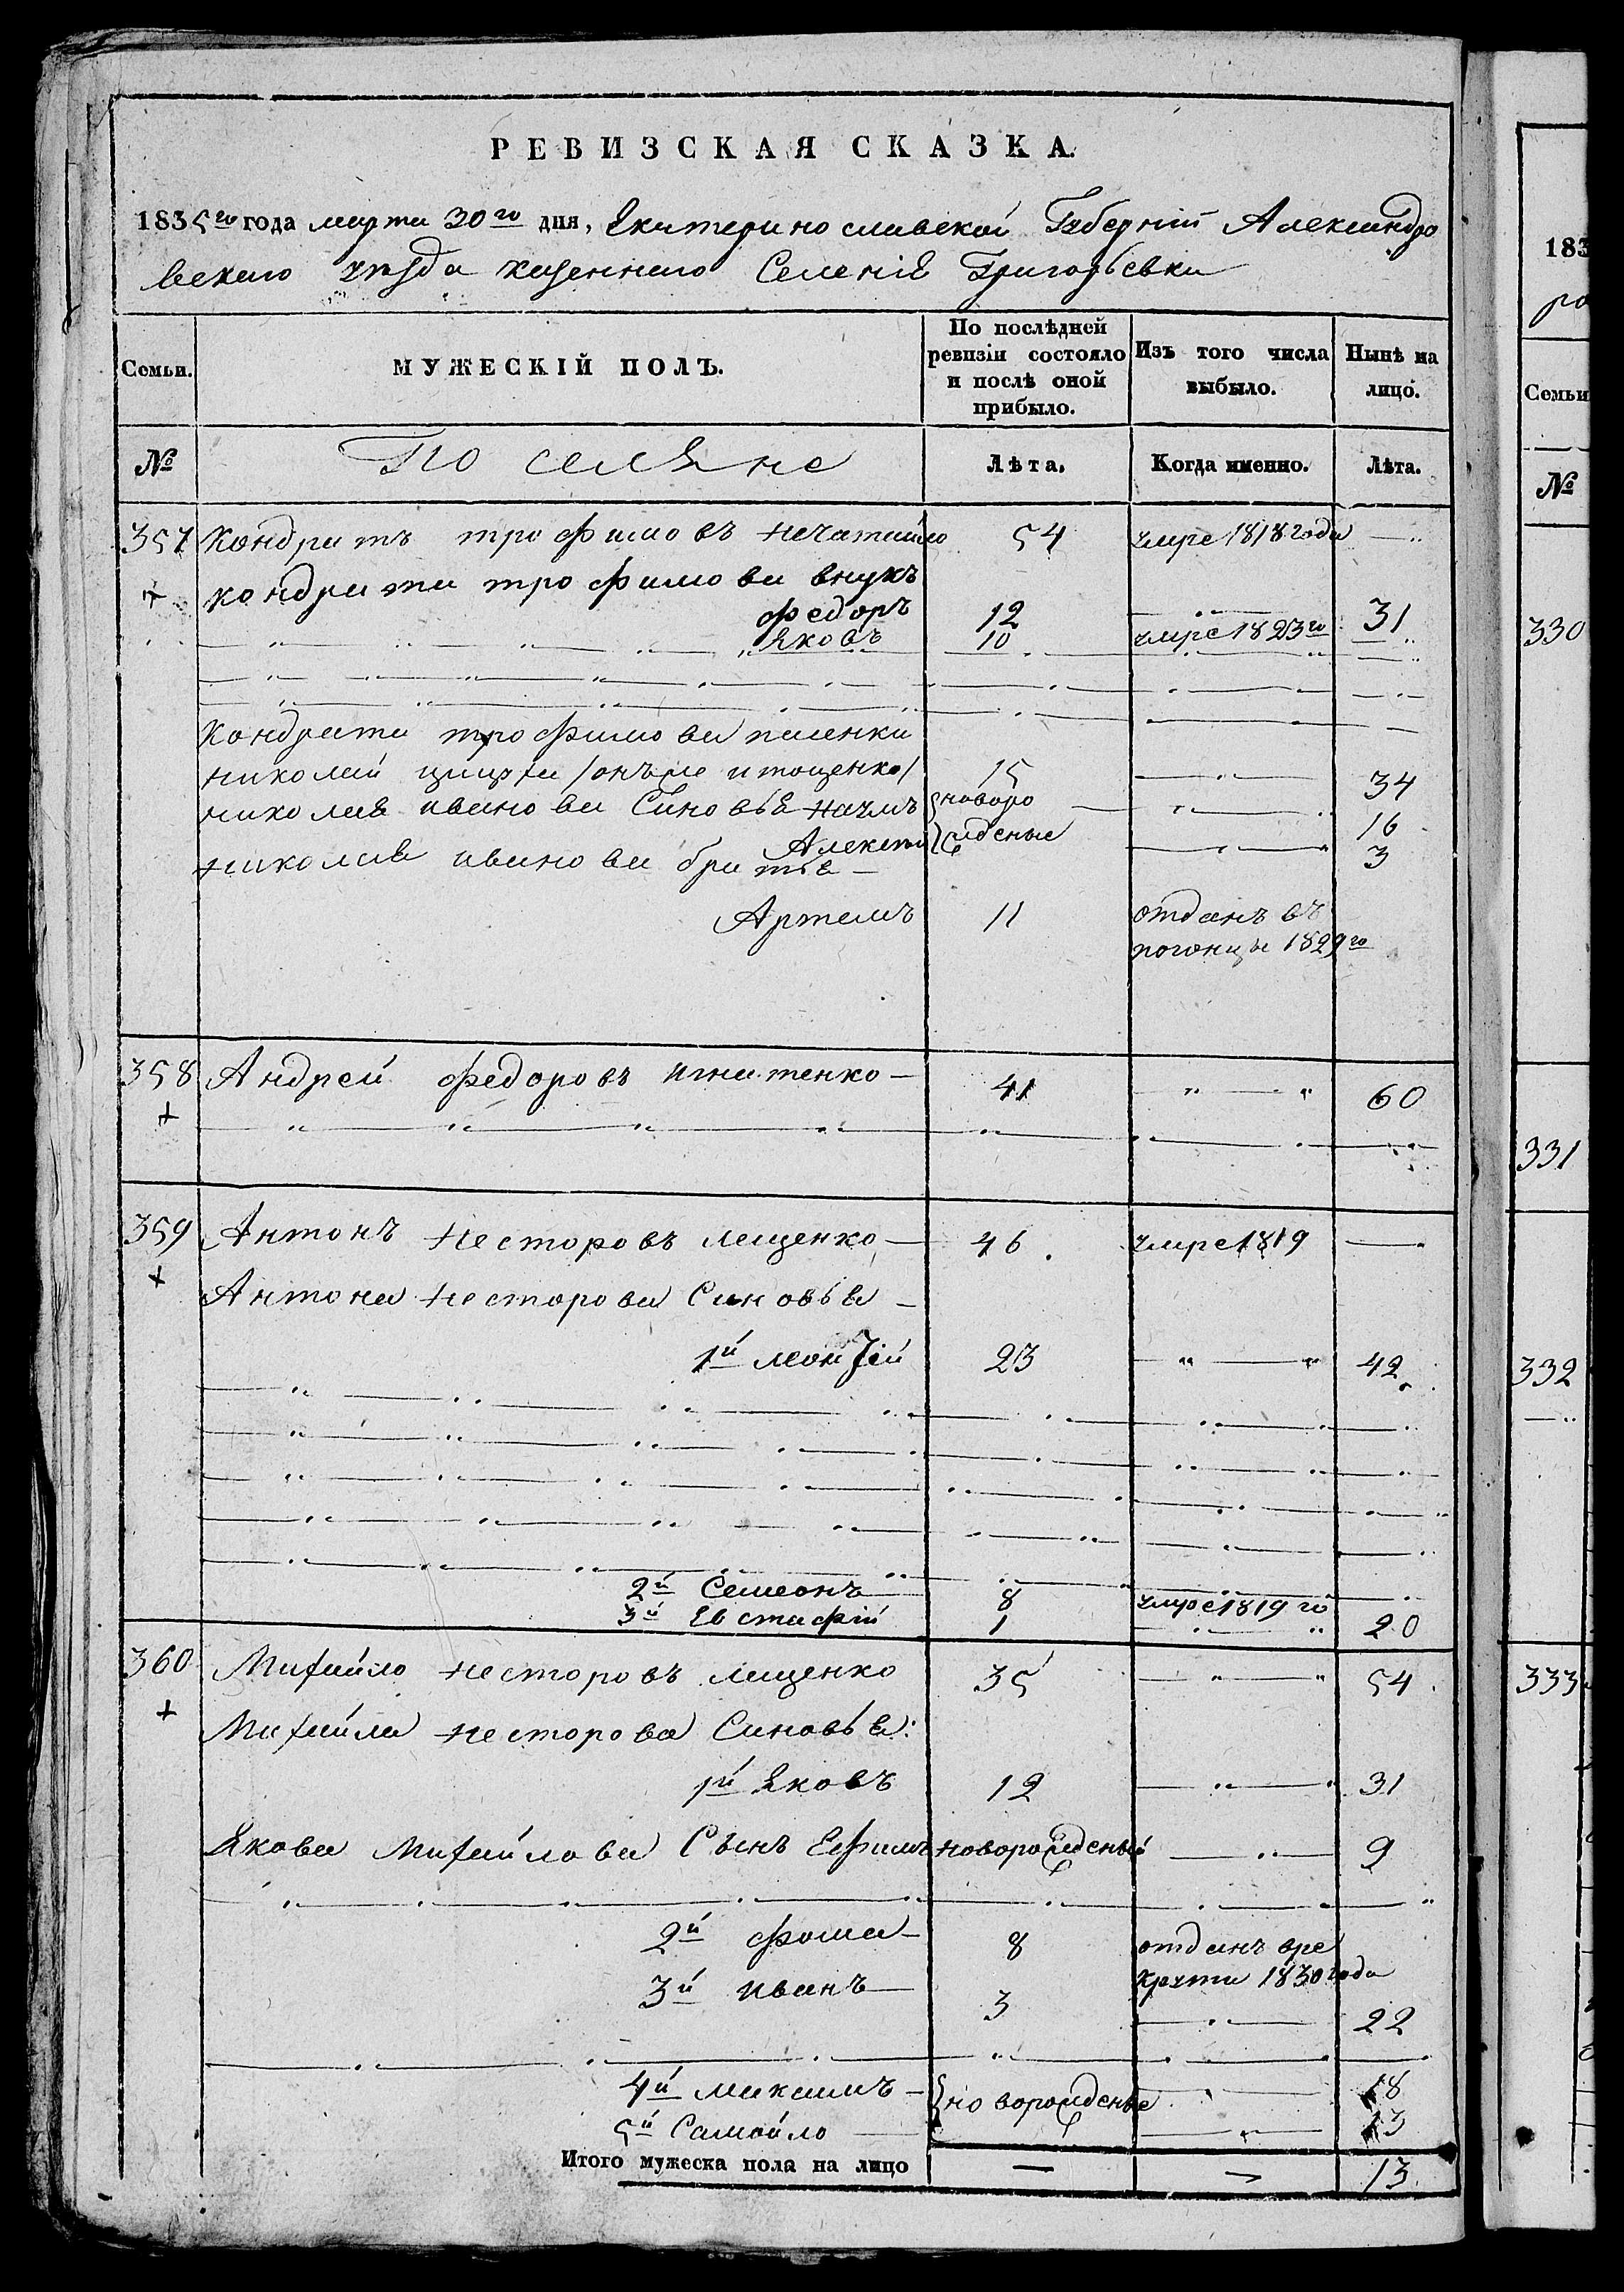 РЕВИЗСКАЯ СКАЗКА.
1835го года марта 30го дня, Екатеринославской Губернiи Александро
вскаго уѣзда казеннаго Селенiя Григорьевки
Семьи.
МУЖЕСКІЙ ПОЛЪ.
По послѣдней ревизіи состояло и послѣ оной прибыло.
Изъ того числа выбыло.
Нынѣ на лицо.
№
Поселяне
Лѣта.
Когда именно.
Лѣта.
357 Кондратъ трофимовъ нечитайло 54 умре 1818 года
кондрата трофимова внукъ
федоръ 12 31
Яковъ 10 умре 1823го
Кондрата трофимова
николай 15 34
николая иванова Синовья наумъ новоро 16
Алексей жденые 3
николая иванова братья
Артемъ 11 отданъ въ
погонцы 1829го
358 Андрей федоровъ игнатенко 41 60
359 Антонъ несторовъ лещенко 46 умре 1819
Антона несторова Синовья
1й леонтiй 23 42
2й Семеонъ 8 умре 1819го
3й Евстафiй 1 20
360 Михайло несторовъ лещенко 35 54
Михайла несторова Синовья:
1й Яковъ 12 31
Якова Михайлова Сынъ Ефимъ новорожденый 9
2й фома 8 отданъ вре
круты 1830 года
3й иванъ 3 22
4й максимъ новорожденые 18
5й Самойло 13
Итого мужеска пола на лицо 13
183
ро
Семьи
№
330
331
332
333